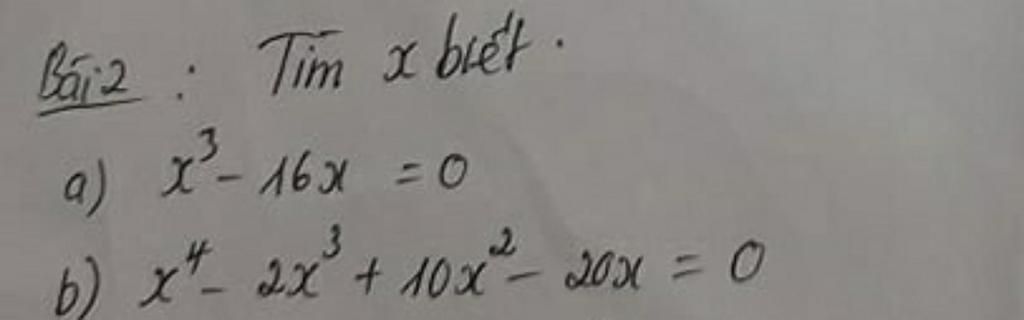 Bài 2 : Tìm x biết.
a) x³ - 16x = 0
b) x⁴ - 2x³ + 10x² - 20x = 0